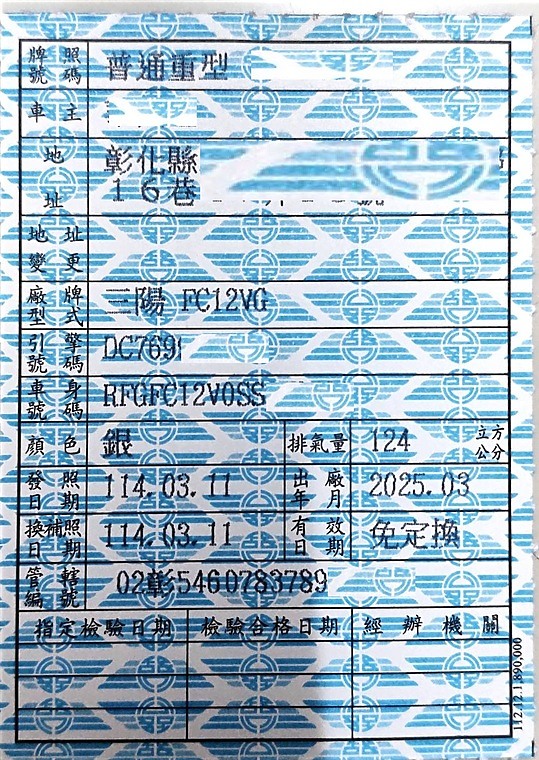 牌照號碼 普通重型
車主
地址 彰化縣
16巷
地址變更
廠牌型式 三陽 FC12VG
引擎號碼 DC769
車身號碼 RFGFC12V0SS
顏色 銀 排氣量 124 立方公分
發照日期 114.03.11 出廠年月 2025.03
換補照日期 114.03.11 有效日期 免定換
管轄編號 02彰5460783789
指定檢驗日期 檢驗合格日期 經辦機關
112.12.1,890,000